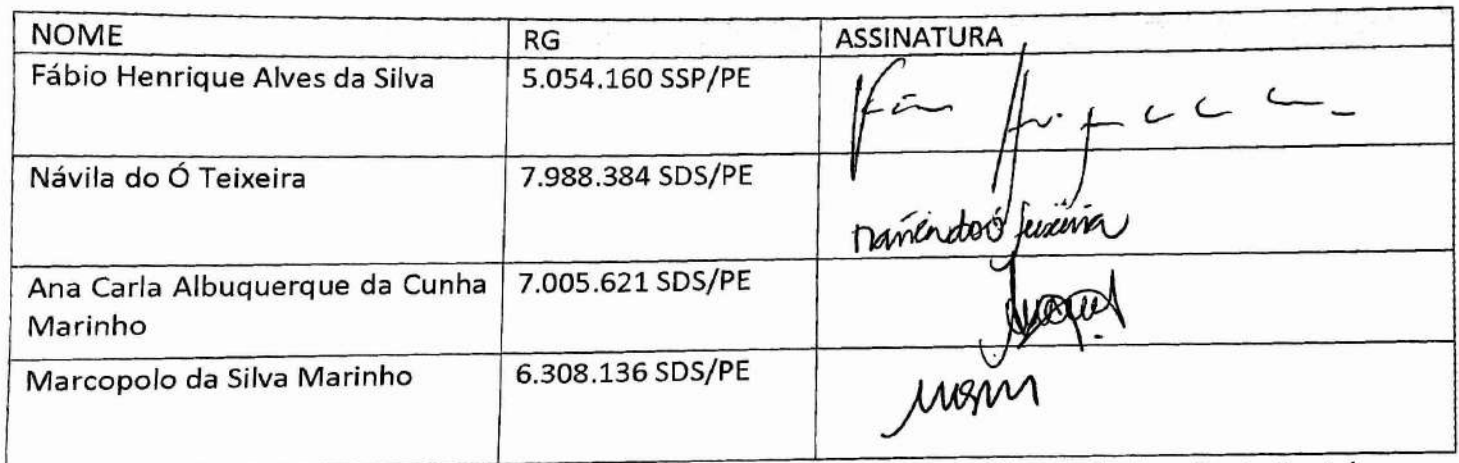 NOME RG ASSINATURA
Fábio Henrique Alves da Silva 5.054.160 SSP/PE
Návila do Ó Teixeira 7.988.384 SDS/PE
do Ó Teixeira
Ana Carla Albuquerque da Cunha 7.005.621 SDS/PE
Marinho
Marcopolo da Silva Marinho 6.308.136 SDS/PE